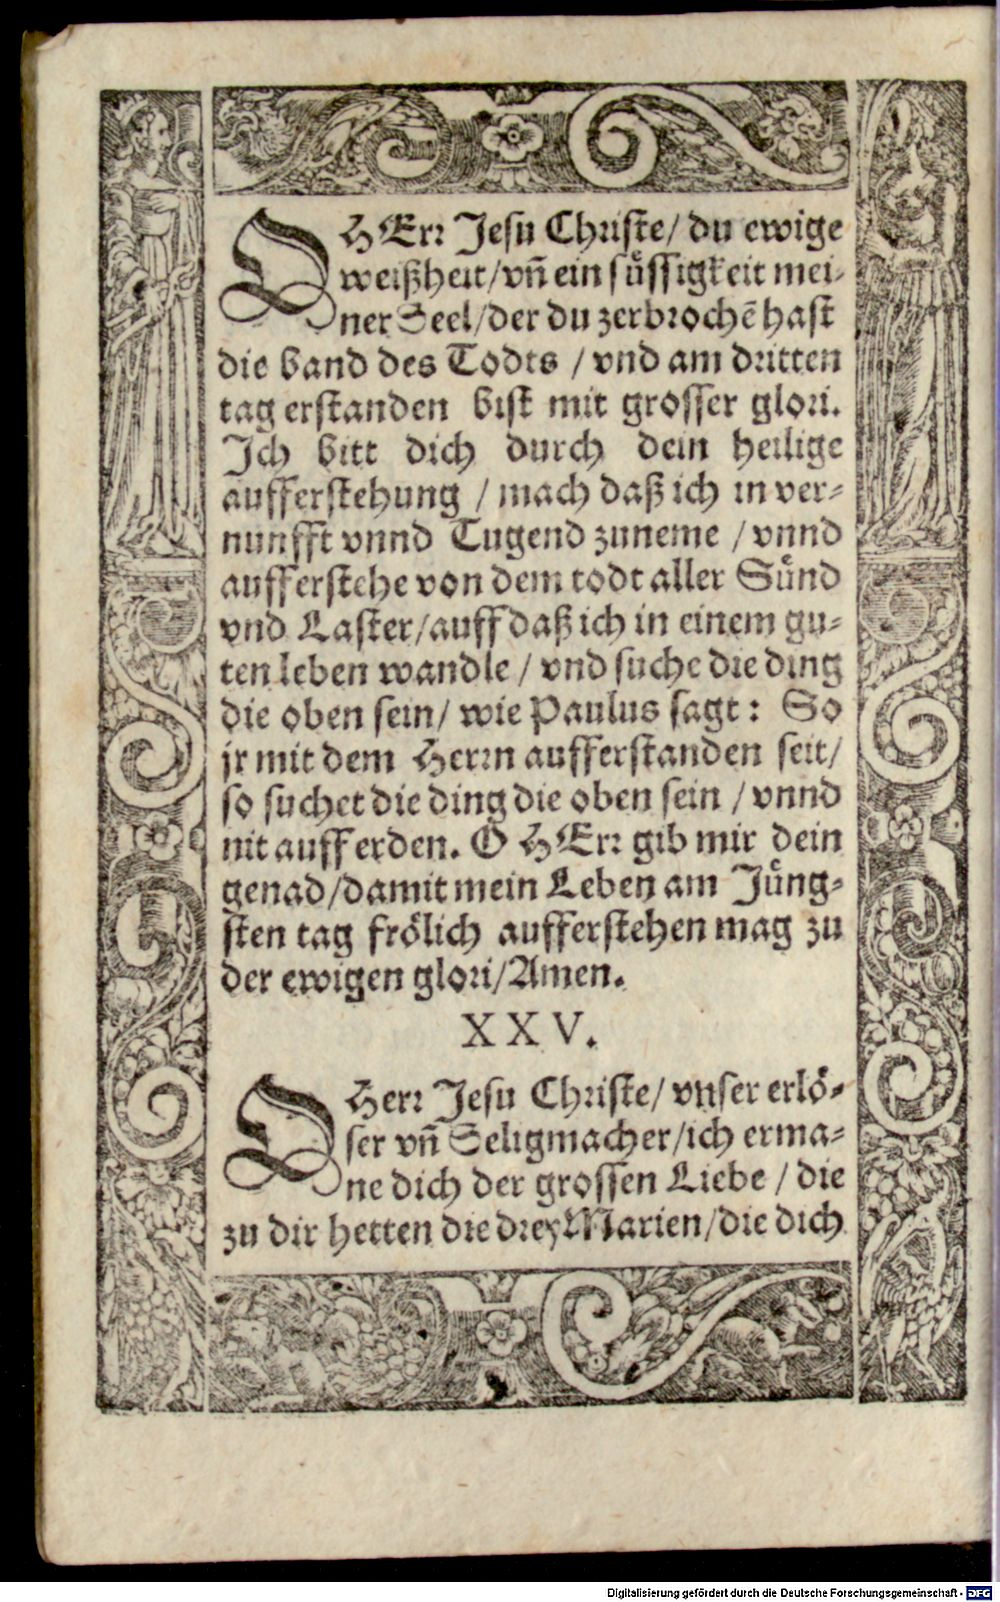 O HErr Jesu Christe/ du ewige
weißheit/vñ ein süssigkeit mei-
ner Seel/der du zerbrochẽ hast
die band des Todts / vnd am dritten
tag erstanden bist mit grosser glori.
Ich bitt dich durch dein heilige
aufferstehung / mach daß ich in ver-
nunfft vnnd Tugend zuneme / vnnd
aufferstehe von dem todt aller Sünd
vnd Laster/auff daß ich in einem gu-
ten leben wandle / vnd suche die ding
die oben sein/ wie Paulus sagt: So
jr mit dem Herrn aufferstanden seit/
so suchet die ding die oben sein / vnnd
nit auff erden. O HErr gib mir dein
genad/damit mein Leben am Jüng-
sten tag frölich aufferstehen mag zu
der ewigen glori/Amen.
XXV.
O Herr Jesu Christe/ vnser erlö-
ser vñ Seligmacher/ich erma-
ne dich der grossen Liebe / die
zu dir hetten die drey Marien/die dich
Digitalisierung gefördert durch die Deutsche Forschungsgemeinschaft - DFG